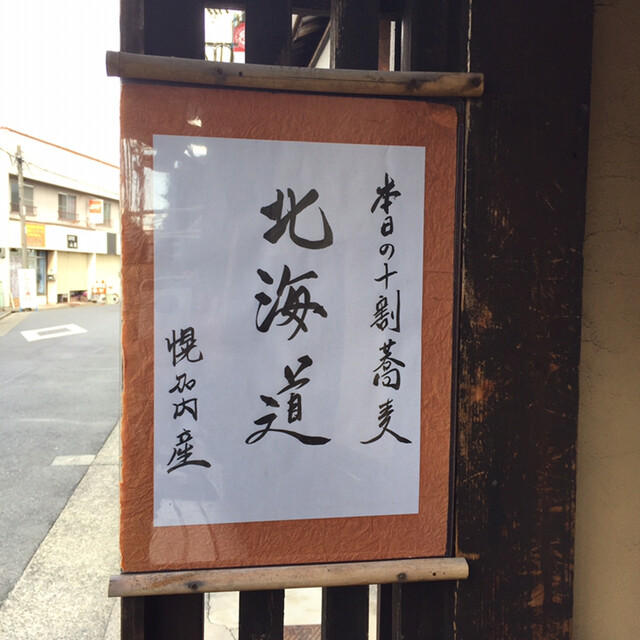 本日の十割蕎麦
北海道
幌加内産